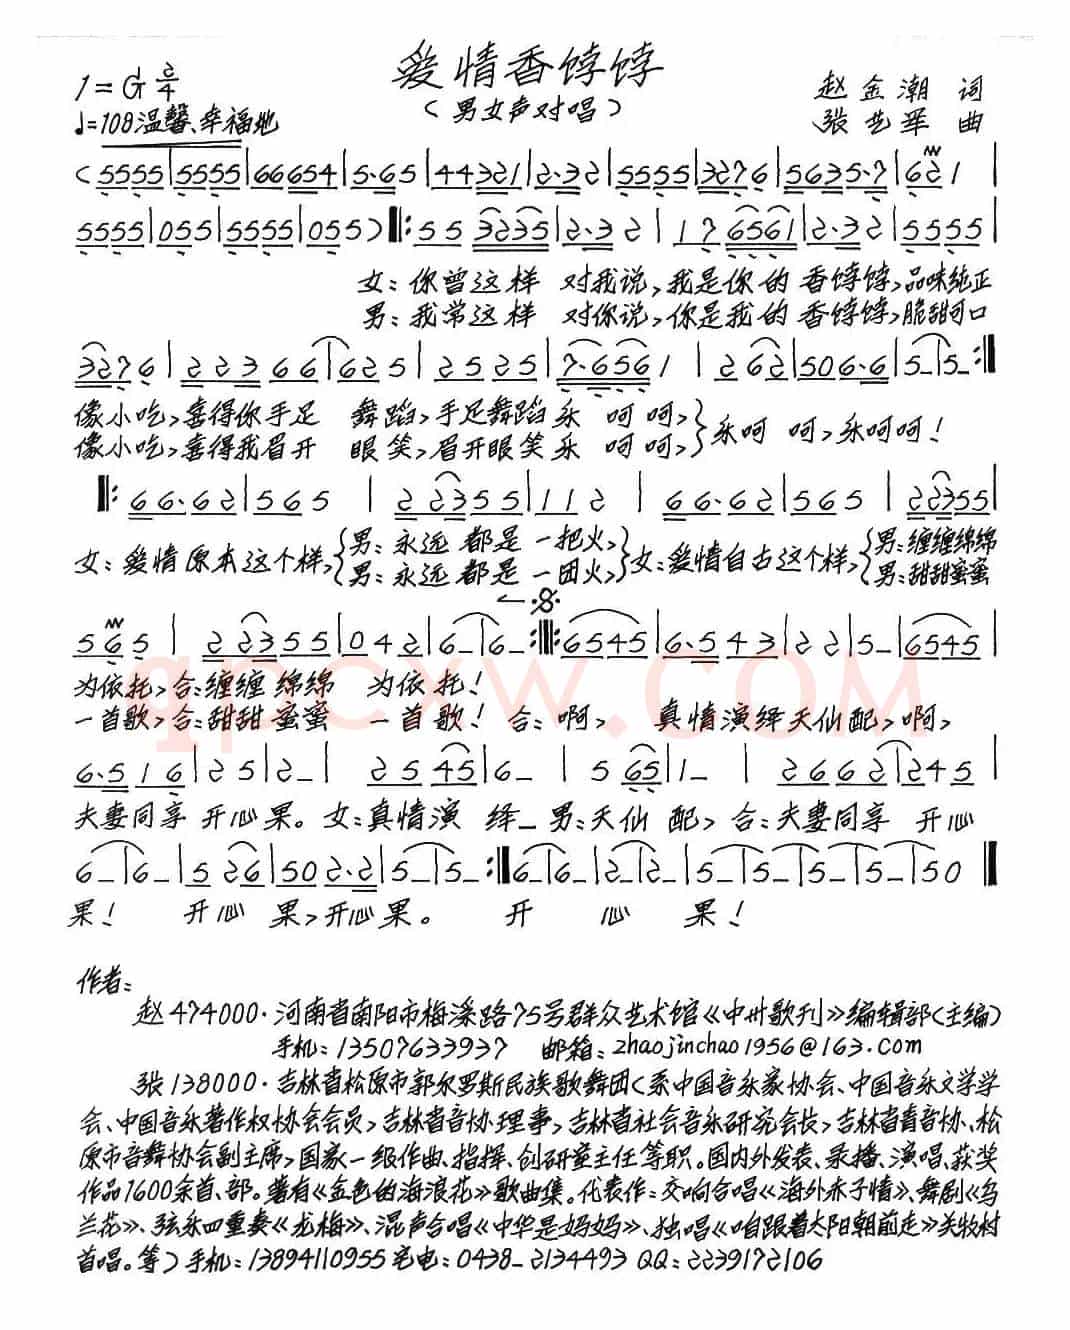 爱情香饽饽
(男女声对唱)
1=G 2/4
♩=108温馨、幸福地
赵金潮 词
张艺军 曲
(5555|5555|66654|5·65|44321|2·32|5555|3276|5635·7|621|
5555|055|5555|055)‖:55 3235|2·32|17 6561|2·32|5555|
女:你曾这样 对我说,我是你的 香饽饽,品味纯正
男:我常这样 对你说,你是我的 香饽饽,脆甜可口
3276|22366|625|2525|7·656 1|262|506·6|5–|5–:‖
像小吃,喜得你手足 舞蹈,手足舞蹈乐 呵 呵,
像小吃,喜得我眉开 眼笑,眉开眼笑乐 呵 呵,}乐呵 呵,乐呵呵!
‖:66·62|565|22355|112|66·62|565|22355|
女:爱情原本这个样,{男:永远 都是 一把火,}女:爱情自古这个样,{男:缠缠绵绵
男:永远 都是 一团火,男:甜甜蜜蜜
565|22355|042|6–|6–:‖:6545|6·543|22|5–|6545|
为依托,合:缠缠绵绵 为依托!
一首歌,合:甜甜蜜蜜 一首歌! 合:啊, 真情演绎天仙配,啊,
6·516|25|2–|2545|6–|5 65|1–|2662|245|
夫妻同享 开心果。女:真情演 绎–男:天仙 配, 合:夫妻同享 开心
6–|6–|526|502·2|5–|5–:‖6–|6–|2–|2–|5–|5–|5–|5–|50‖
果! 开心 果,开心果。 开 心 果!
作者:
赵474000·河南省南阳市梅溪路75号群众艺术馆《中州歌刊》编辑部(主编)
手机:13507633937 邮箱:zhaojinchao1956@163.com
张138000·吉林省松原市郭尔罗斯民族歌舞团(系中国音乐家协会、中国音乐文学学
会、中国音乐著作权协会会员,吉林省音协理事,吉林省社会音乐研究会长,吉林省青音协、松
原市音舞协会副主席,国家一级作曲、指挥、创研室主任等职。国内外发表、录播、演唱、获奖
作品1600余首、部。著有《金色的海浪花》歌曲集。代表作:交响合唱《海外赤子情》、舞剧《乌
兰花》、弦乐四重奏《龙梅》、混声合唱《中华是妈妈》、独唱《咱跟着太阳朝前走》关牧村
首唱。等)手机:13894110955宅电:0438–2134493 QQ:2239172106
qpcxw.COM